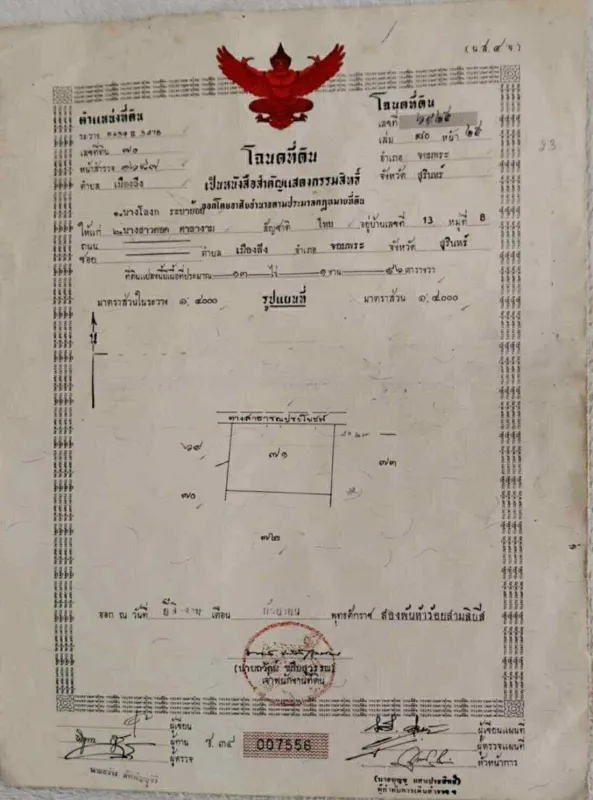 (น.ส.๔ จ.)
ตำแหน่งที่ดิน
ระวาง
เลขที่ดิน ๗๑
หน้าสำรวจ
ตำบล เมืองลีง
โฉนดที่ดิน
เลขที่
เล่ม หน้า ๒๕
อำเภอ จอมพระ
จังหวัด สุรินทร์
23
โฉนดที่ดิน
เป็นหนังสือสำคัญแสดงกรรมสิทธิ์
ออกโดยอาศัยอำนาจตามประมวลกฎหมายที่ดิน
๑.นางโลงก ระยาย้อย
ให้แก่ ๒.นางสาวทอด ศาลางาม สัญชาติ ไทย อยู่บ้านเลขที่ 13 หมู่ที่ 8
ถนน
ซอย ตำบล เมืองลีง อำเภอ จอมพระ จังหวัด สุรินทร์
ที่ดินแปลงนี้มีเนื้อที่ประมาณ ๑๓ ไร่ ๑ งาน ๔๖ ตารางวา
มาตราส่วนในระวาง ๑: ๔๐๐๐ รูปแผนที่ มาตราส่วน ๑: ๔๐๐๐
น
ทางสาธารณประโยชน์
๗๑
๖๙
๗๓
๗๐
๗๒
ออก ณ วันที่ เดือน กันยายน พุทธศักราช สองพันห้าร้อยสามสิบสี่
เจ้าพนักงานที่ดิน
ผู้เขียน
ผู้ทาน
ผู้ตรวจ
ช. ๓๔
007556
ผู้เขียนแผนที่
ผู้ตรวจแผนที่
หัวหน้าการ